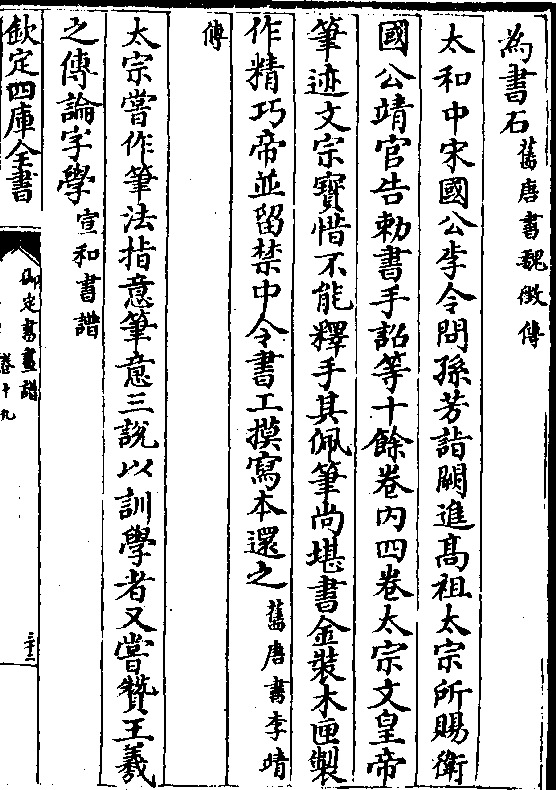 為書石舊唐書魏徴傳
太和中宋國公李令問孫芳詣闕進髙祖太宗所賜衛
國公靖官告勅書手詔等十餘卷内四卷太宗文皇帝
筆迹文宗寳惜不能釋手其佩筆尚堪書金裝木匣製
作精巧帝並留禁中令書工摸寫本還之舊唐書李靖
傳
太宗嘗作筆法指意筆意三說以訓學者又嘗贊王羲
之傳論字學宣和書譜
欽定四庫全書
御定書畫譜
卷十九
三十二